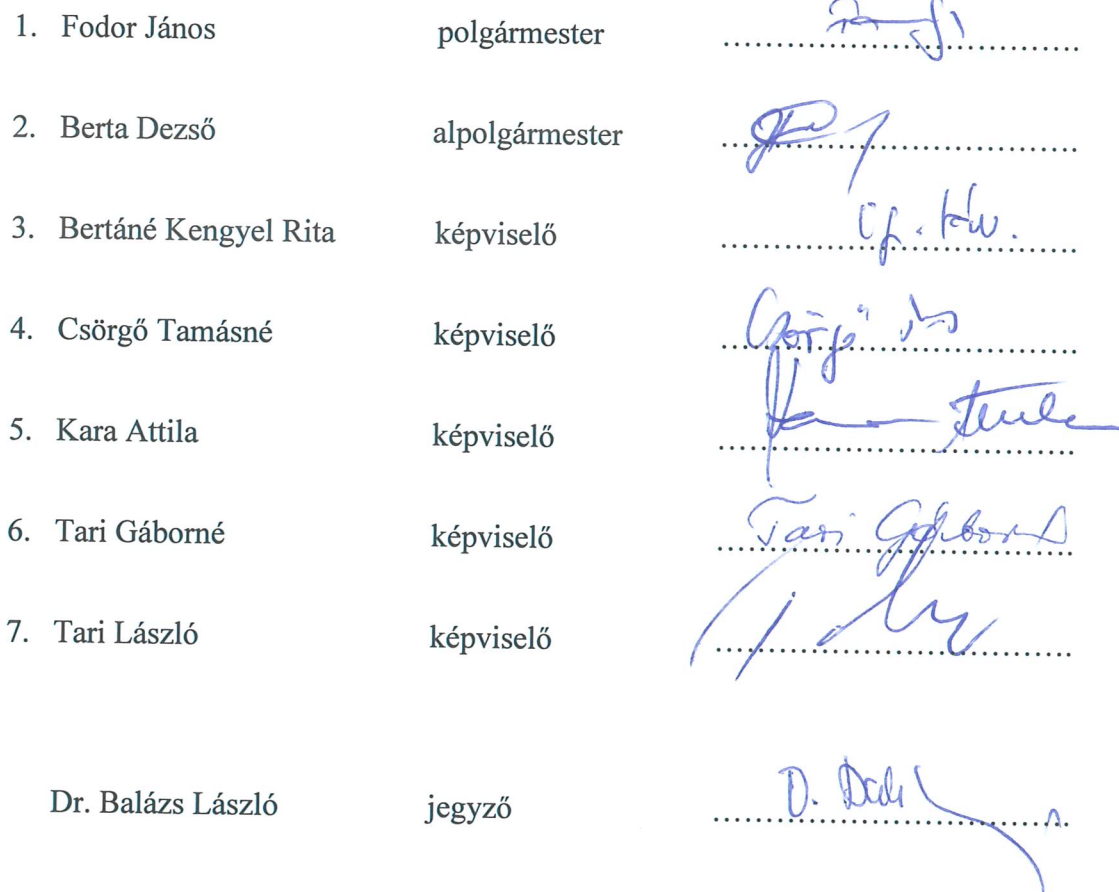 1. Fodor János polgármester ........................................
2. Berta Dezső alpolgármester ........................................
3. Bertáné Kengyel Rita képviselő ........................................
4. Csörgő Tamásné képviselő Csörgő
5. Kara Attila képviselő ........................................
6. Tari Gáborné képviselő Tari Gáborné
7. Tari László képviselő ........................................
Dr. Balázs László jegyző ........................................